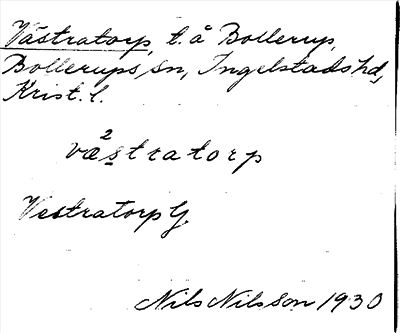 Västratorp, t. å Bollerup,
Bollerups sn, Ingelstads hd,
Krist. l.
væ²stratorp
Vestratorp G.
Nils Nilsson 1930